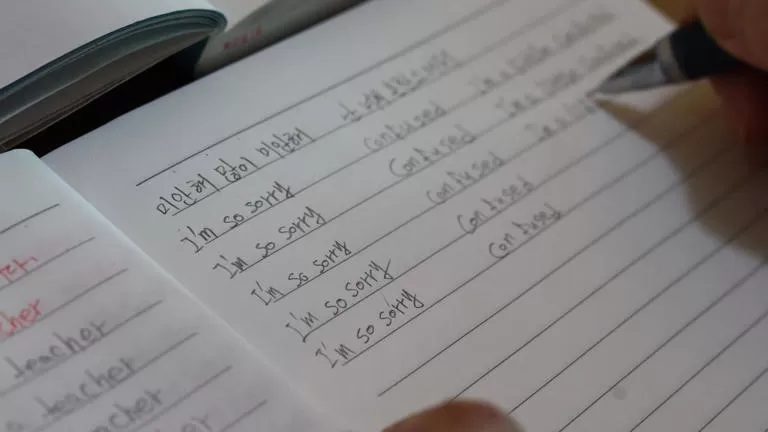 미안해 많이 미안해 난
I'm so sorry confused I'm a little confused
I'm so sorry confused I'm a little
I'm so sorry confused I'm a
I'm so sorry confused
I'm so sorry confused
cher
teacher
a teacher
acher